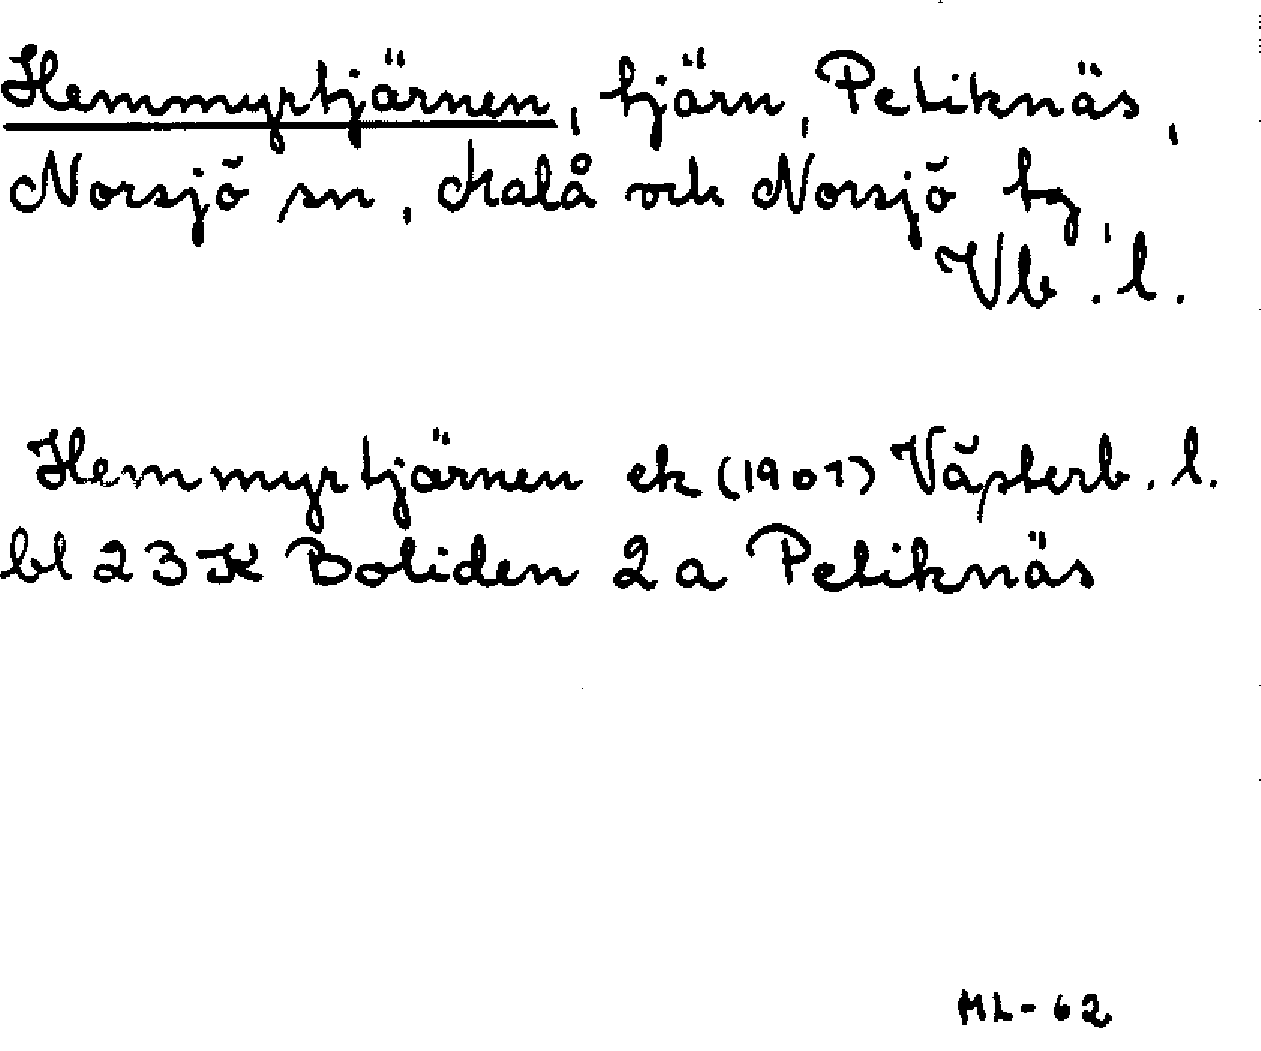 Hemmyrtjärnen, tjärn, Petiknäs,
Norsjö sn, Malå och Norsjö tg,
Vb. l.
Hemmyrtjärnen ek (1961) Västerb. l.
bl 23 K Boliden 2 a Petiknäs
ML-62